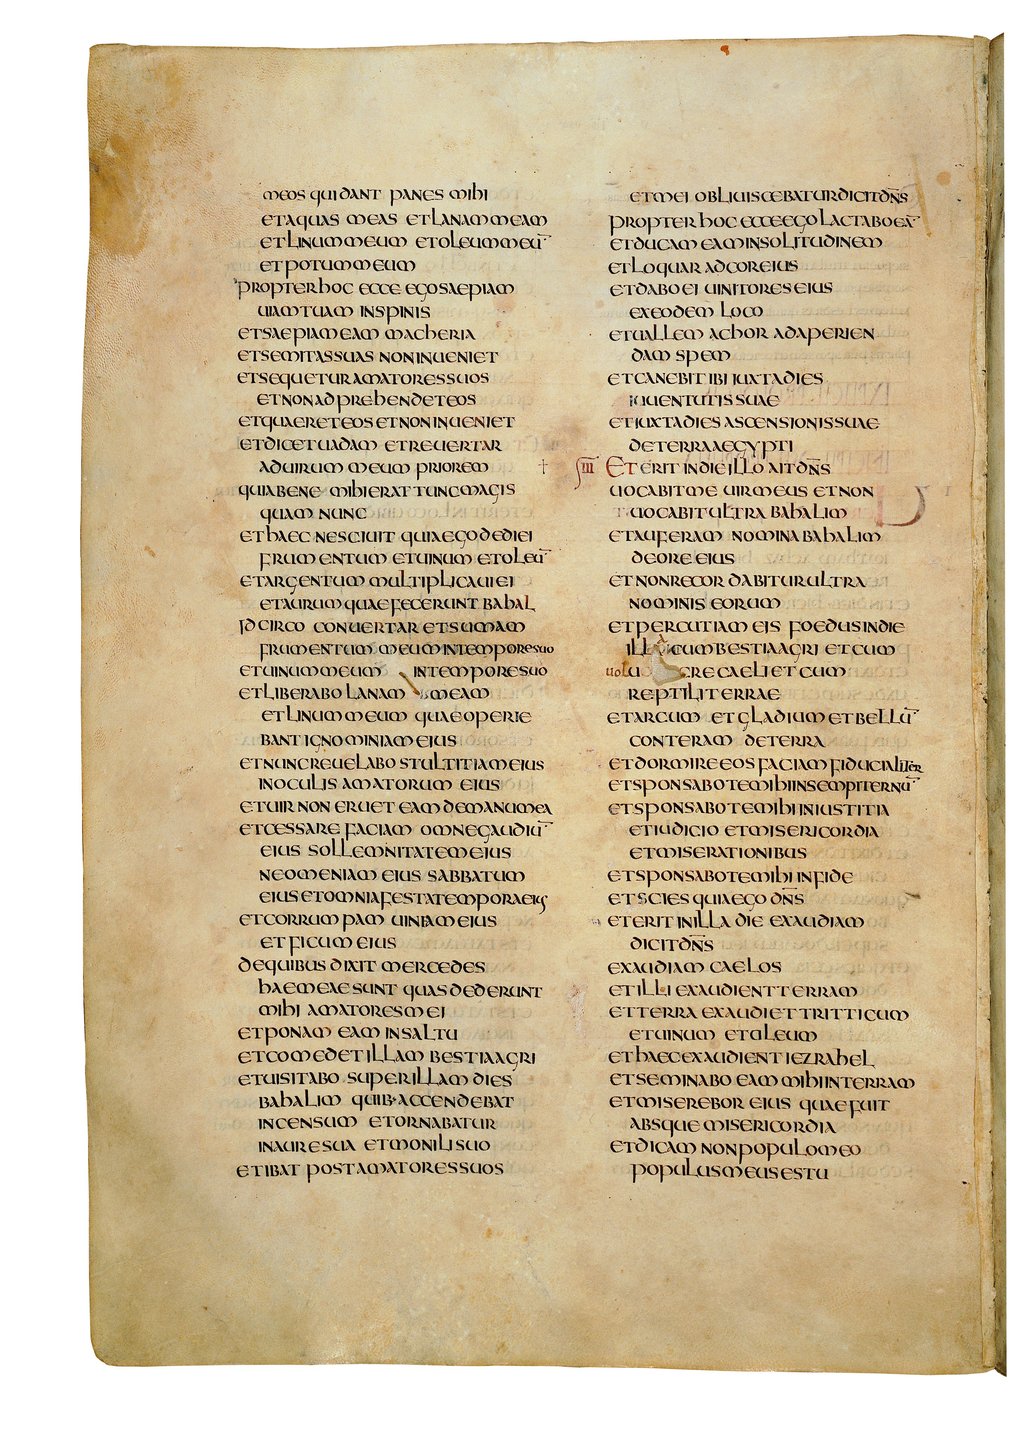 meos qui dant panes mihi
et aquas meas et lanam meam
et linum meum et oleum meū
et potum meum
propter hoc ecce ego saepiam
uiam tuam in spinis
et saepiam eam macheria
et semitas suas non inueniet
et sequetur amatores suos
et non adprehendet eos
et quaeret eos et non inueniet
et dicet uadam et reuertar
ad uirum meum priorem
quia bene mihi erat tunc magis
quam nunc
et haec nesciuit quia ego dedi ei
frumentum et uinum et oleū
et argentum multiplicaui ei
et aurum quae fecerunt bahal
idcirco conuertar et sumam
frumentum meum in tempore suo
et uinum meum in tempore suo
et liberabo lanam meam
et linum meum quae operie
bant ignominiam eius
et nunc reuelabo stultitiam eius
in oculis amatorum eius
et uir non eruet eam de manu mea
et cessare faciam omne gaudiū
eius sollemnitatem eius
neomeniam eius sabbatum
eius et omnia festa tempora eius
et corrumpam uiniam eius
et ficum eius
de quibus dixit mercedes
hae meae sunt quas dederunt
mihi amatores mei
et ponam eam in saltu
et comedet illam bestia agri
et uisitabo super illam dies
bahalim quib· accendebat
incensum et ornabatur
inaure sua et monili suo
et ibat post amatores suos
et mei obliuiscebatur dicit dn̄s
propter hoc ecce ego lactabo eā
et ducam eam in solitudinem
et loquar ad cor eius
et dabo ei uinitores eius
ex eodem loco
et uallem achor ad aperien
dam spem
et canebit ibi iuxta dies
iuuentutis suae
et iuxta dies ascensionis suae
de terra aegypti
IIII Et erit in die illo ait dn̄s
uocabit me uir meus et non
uocabit ultra bahalim
et auferam nomina bahalim
de ore eius
et non recordabitur ultra
nominis eorum
et percutiam eis foedus in die
illa cum bestia agri et cum
uolucre caeli et cum
reptili terrae
et arcum et gladium et bellū
conteram de terra
et dormire eos faciam fiducialiter
et sponsabo te mihi in sempiternū
et sponsabo te mihi in iustitia
et iudicio et misericordia
et miserationibus
et sponsabo te mihi in fide
et scies quia ego dn̄s
et erit in illa die exaudiam
dicit dn̄s
exaudiam caelos
et illi exaudient terram
et terra exaudiet triticum
et uinum et oleum
et haec exaudient iezrahel
et seminabo eam mihi in terram
et miserebor eius quae fuit
absque misericordia
et dicam non populo meo
populus meus es tu